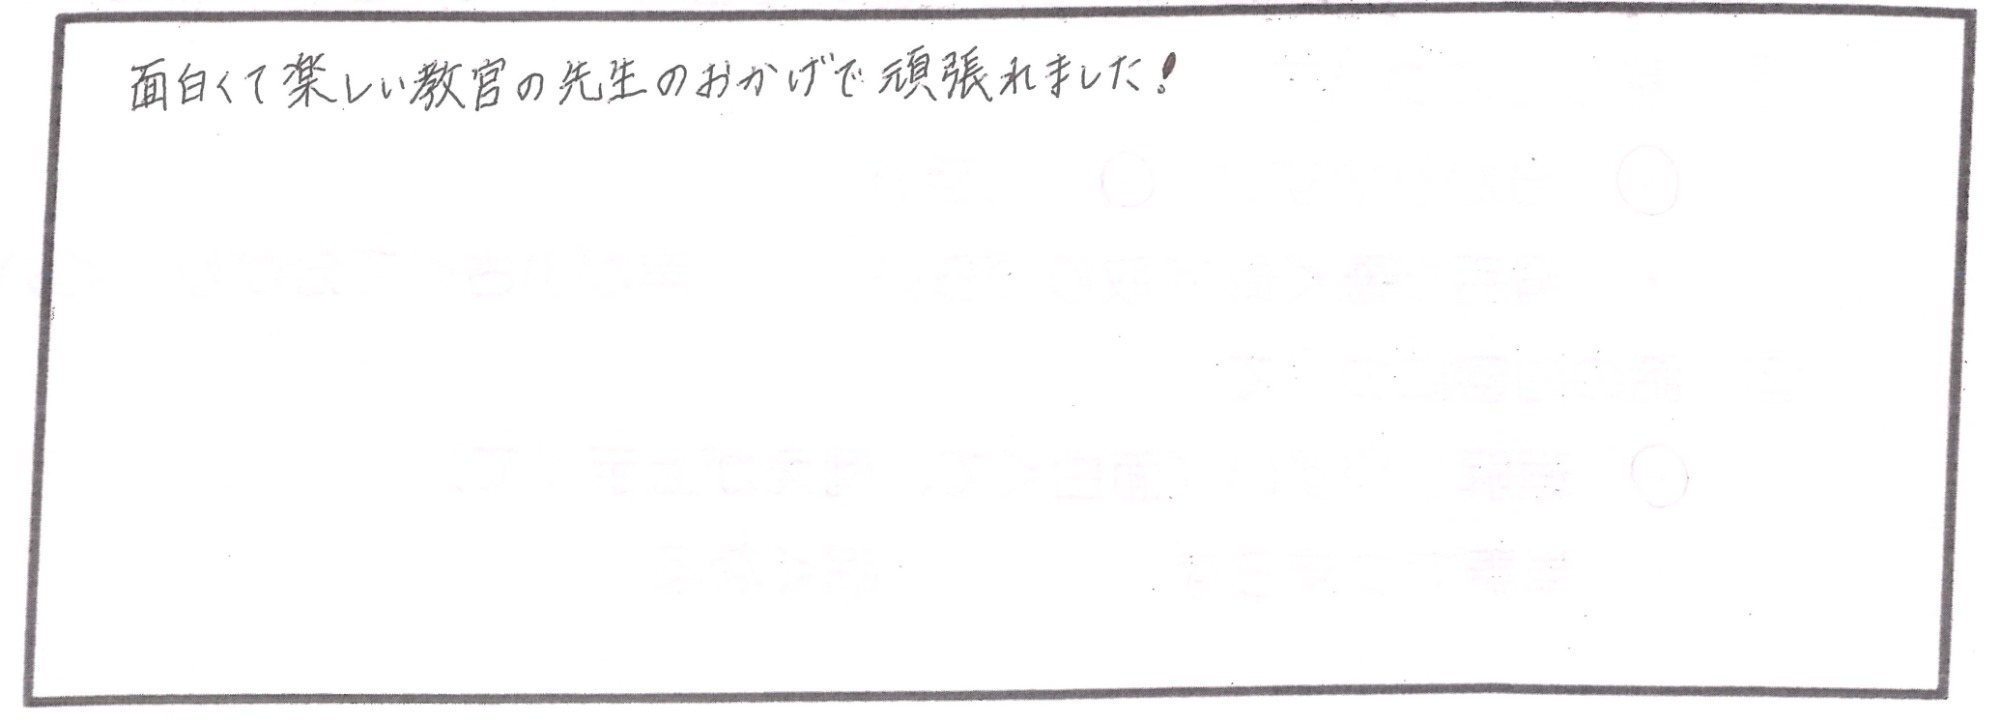 面白くて楽しい教官の先生のおかげで頑張れました!